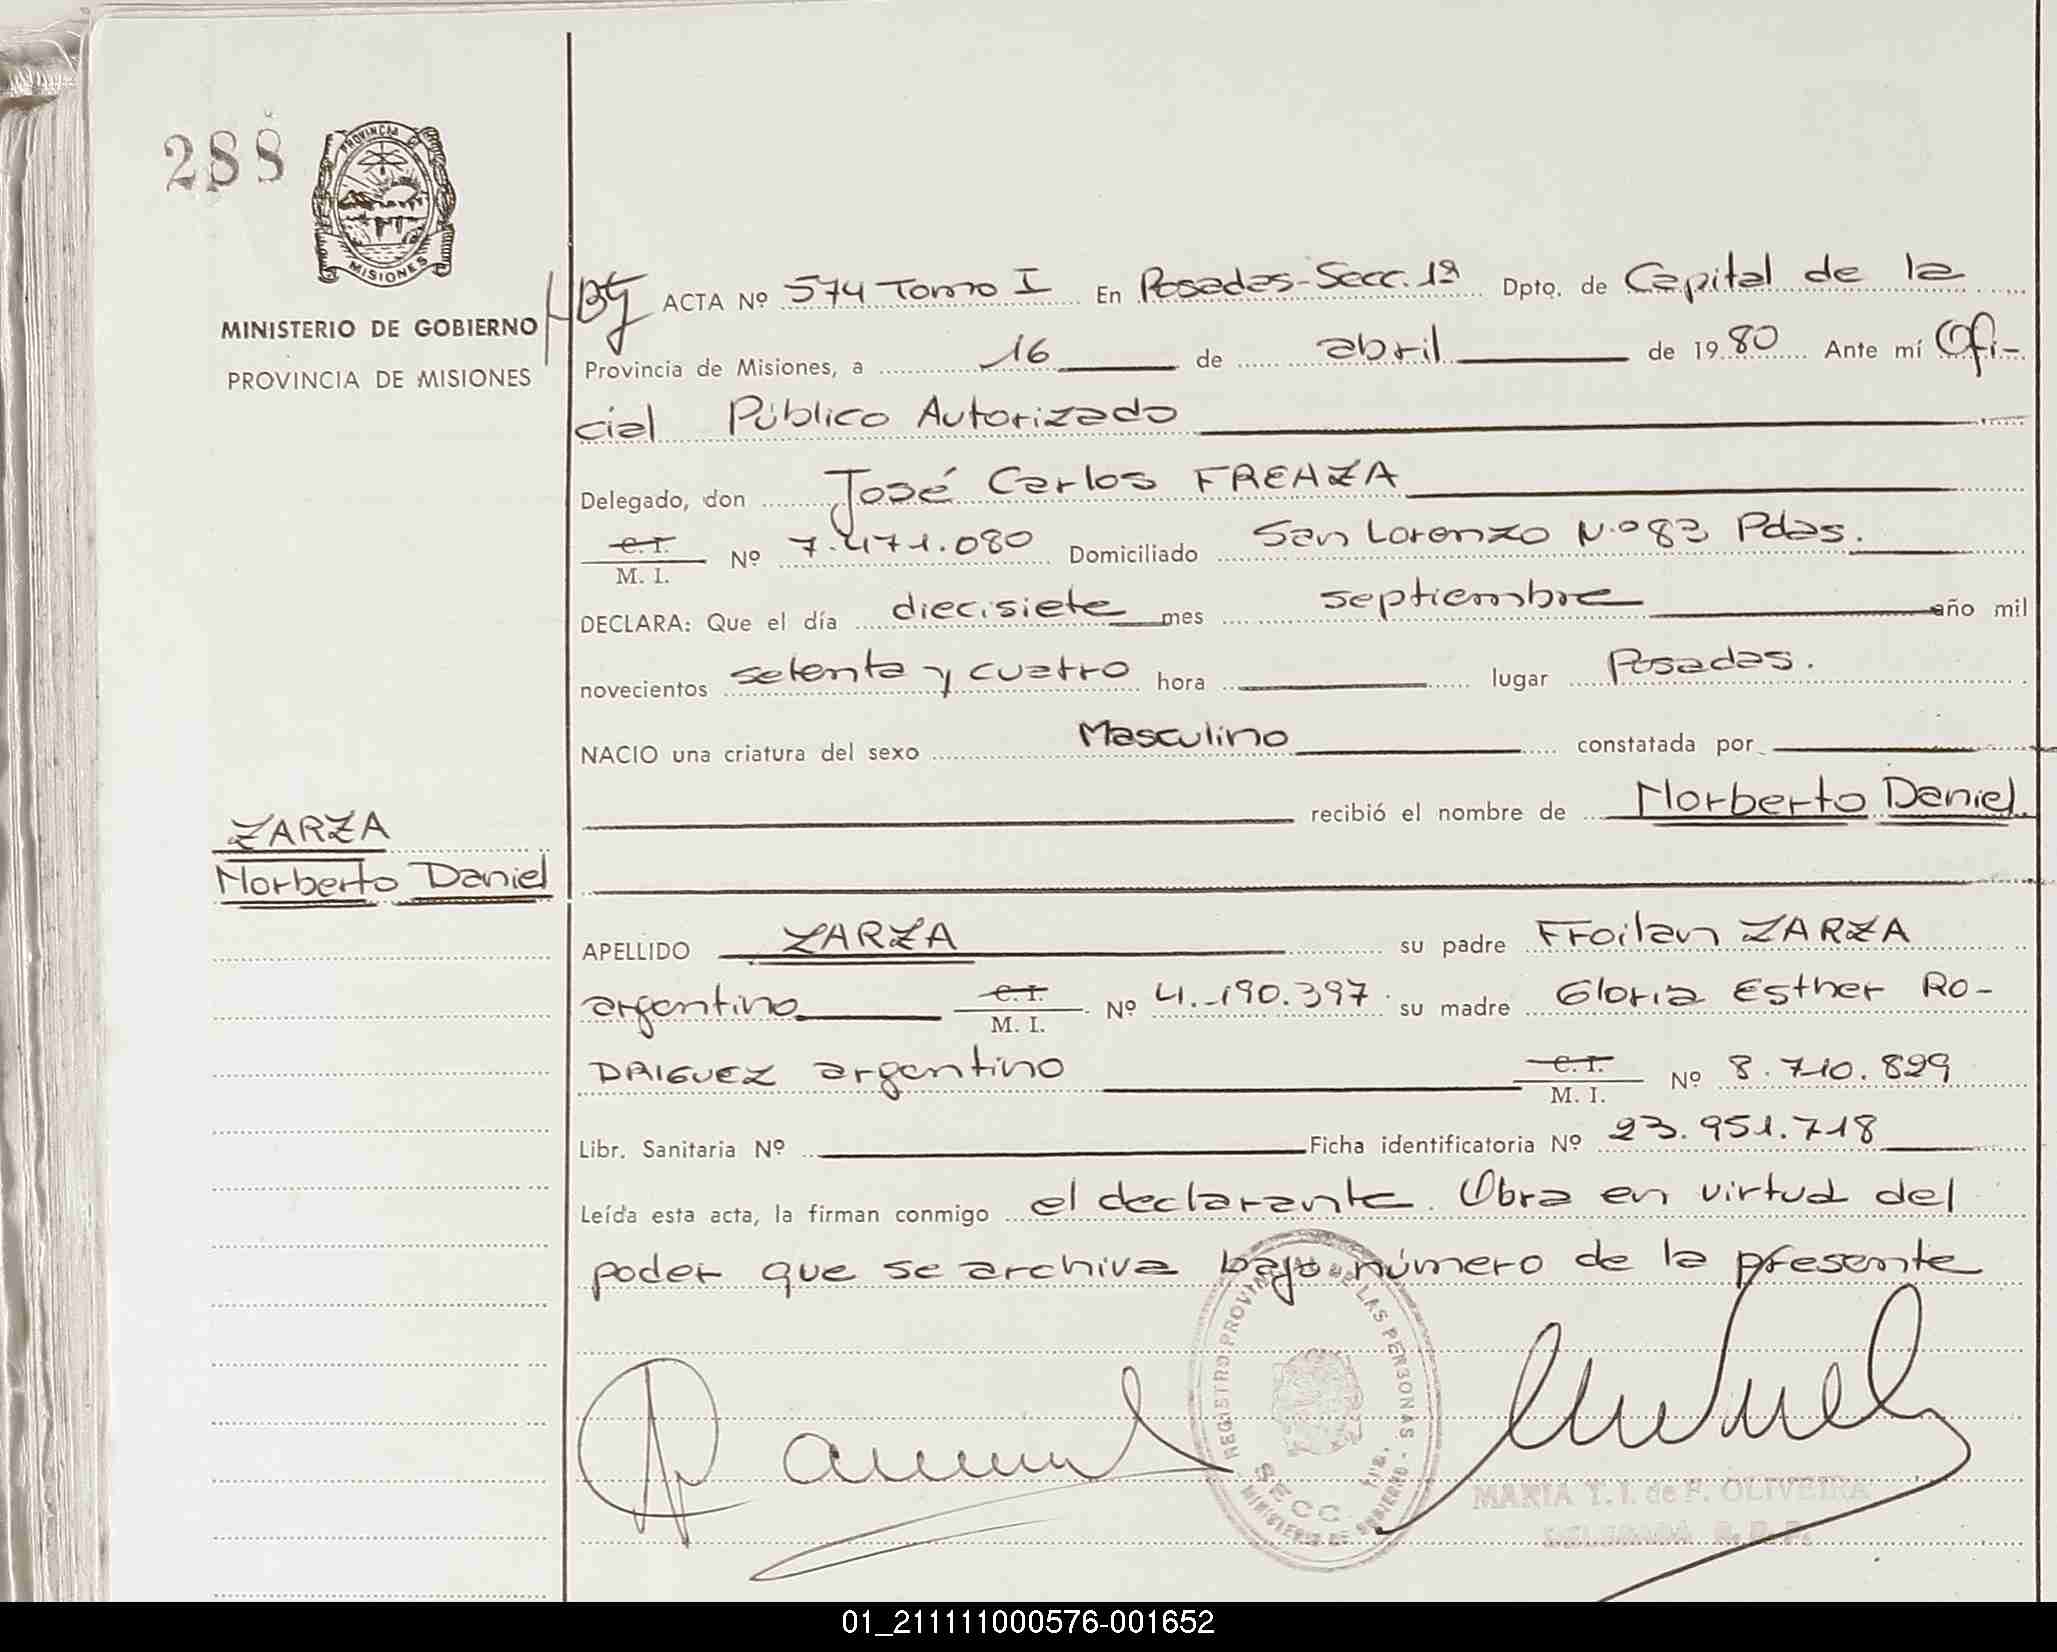 288
PROVINCIA DE
MISIONES
MINISTERIO DE GOBIERNO
PROVINCIA DE MISIONES
ACTA Nº 574 Tomo I En Posadas-Secc. 1ª Dpto. de Capital de la
Provincia de Misiones, a 16 de abril de 1980 Ante mí Ofi-
cial Público Autorizado
Delegado, don José Carlos FREAZA
C.I. M. I. Nº 7.471.080 Domiciliado San Lorenzo N.º 83 Pdas.
DECLARA: Que el día diecisiete mes septiembre año mil
novecientos setenta y cuatro hora lugar Posadas.
NACIO una criatura del sexo Masculino constatada por
recibió el nombre de Norberto Daniel
ZARZA
Norberto Daniel
APELLIDO ZARZA su padre Froilan ZARZA
argentino C.I. M. I. Nº 4.190.397 su madre Gloria Esther RO-
DRIGUEZ argentino C.I. M. I. Nº 8.710.829
Libr. Sanitaria Nº Ficha identificatoria Nº 23.951.718
Leída esta acta, la firman conmigo el declarante. Obra en virtud del
poder que se archiva bajo número de la presente
REGISTRO PROVINCIAL DE LAS PERSONAS - MINISTERIO DE GOBIERNO
SECC. 1ra.
MARIA T. I. de F. OLIVEIRA
DELEGADA R. P. P.
01_211111000576-001652